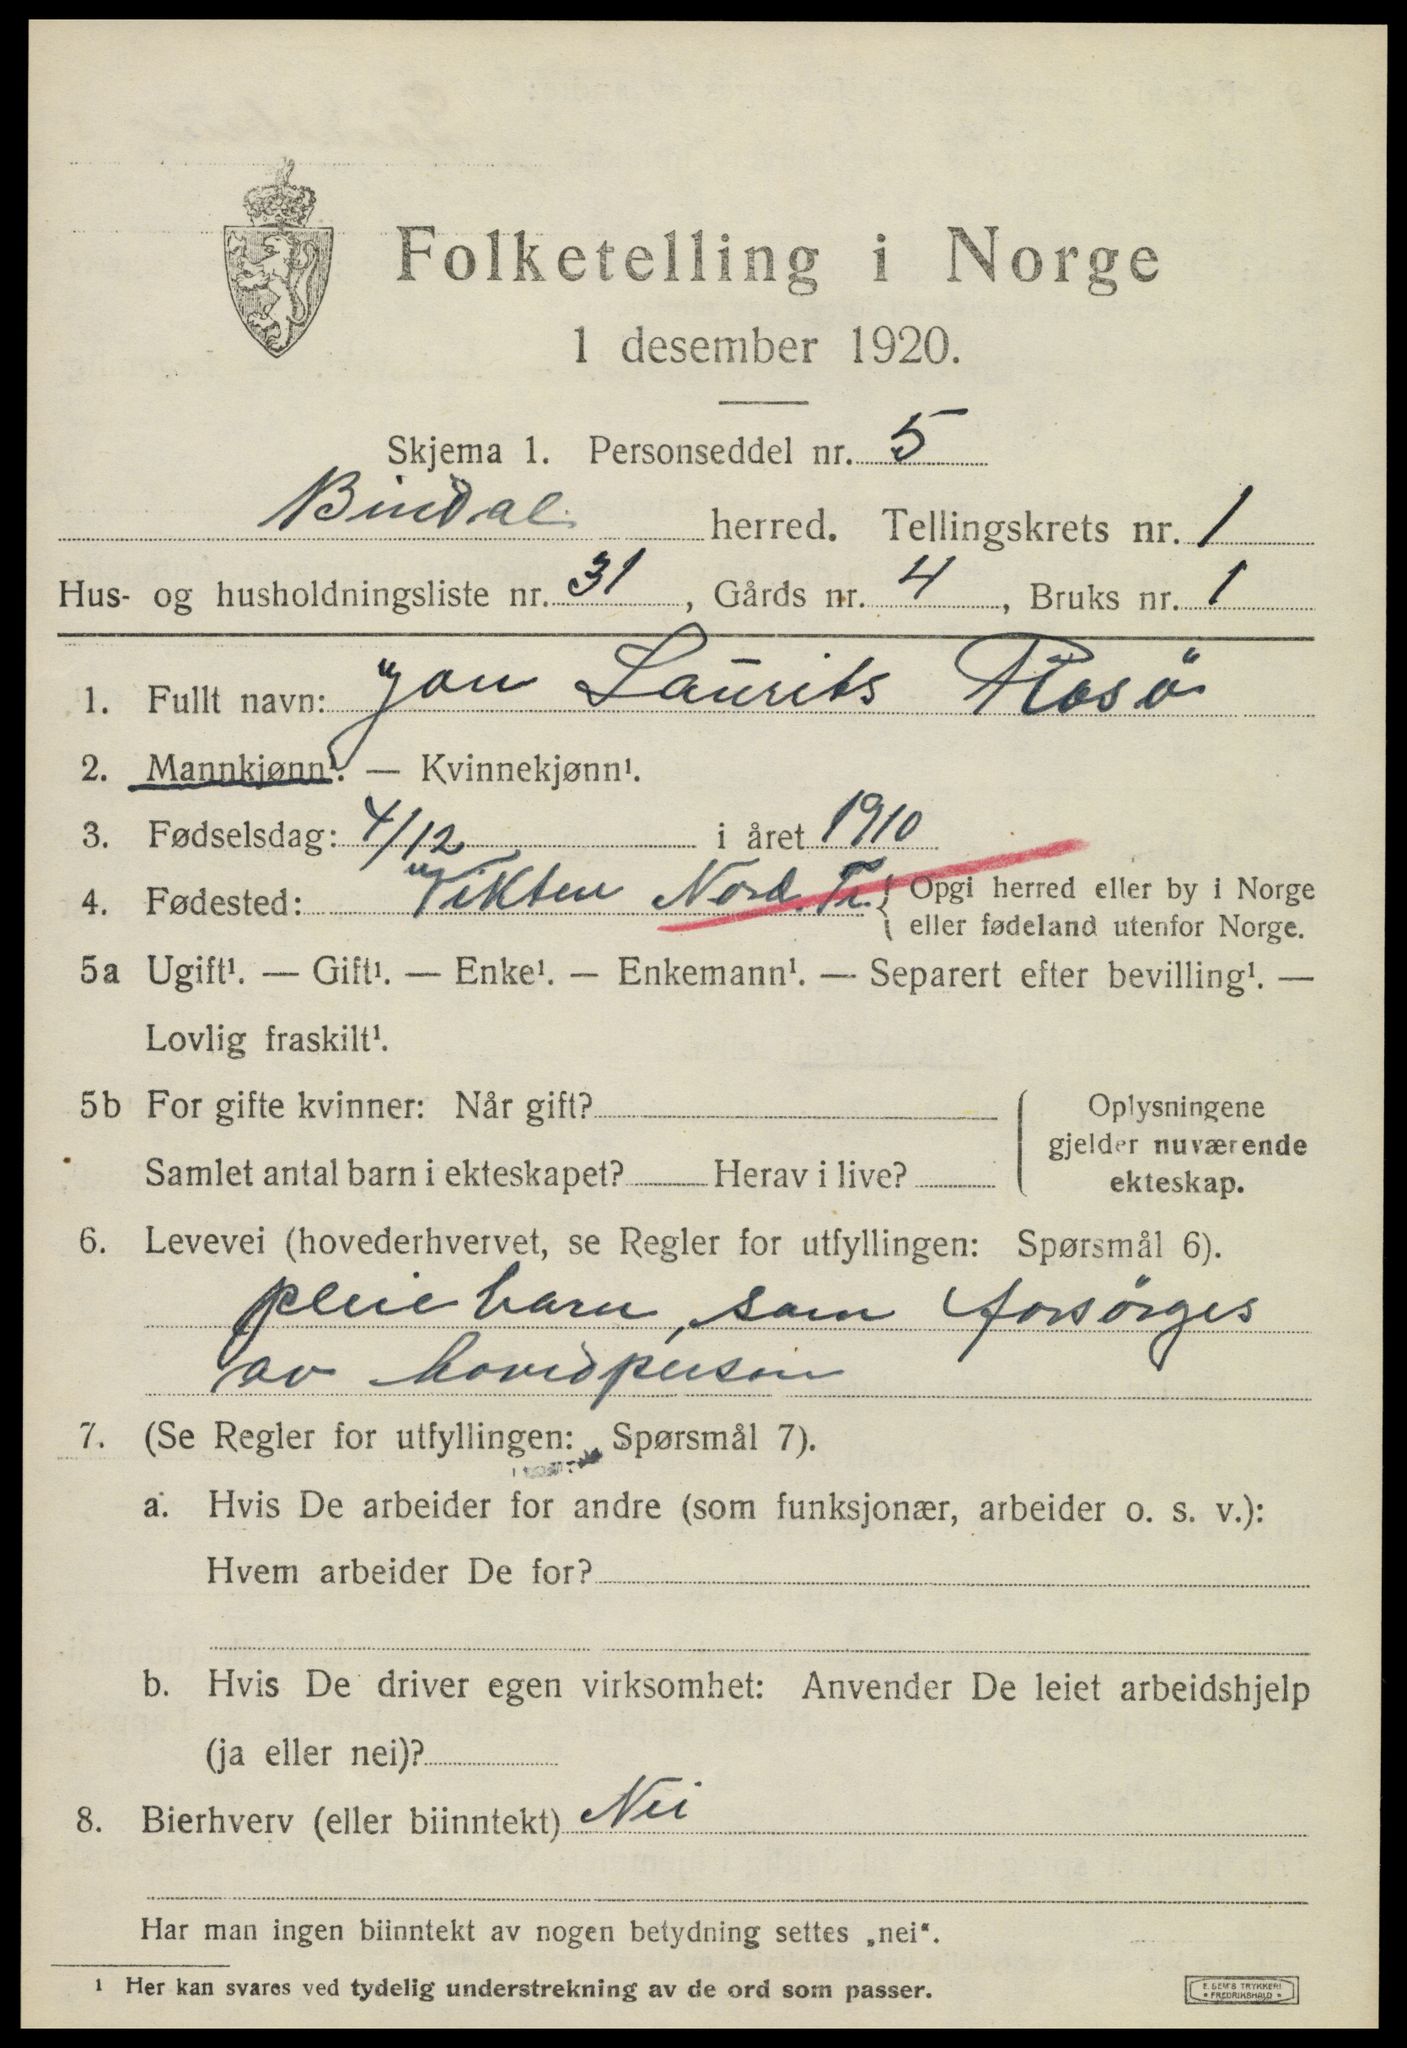 Folketelling i Norge
1 desember 1920.
Skjema 1. Personseddel nr. 5
Bindal herred. Tellingskrets nr. 1
Hus- og husholdningsliste nr. 31, Gårds nr. 4, Bruks nr. 1
1. Fullt navn: Jon Laurits Flosö
2. Mannkjønn¹. — Kvinnekjønn¹.
3. Fødselsdag: 4/12 i året 1910
4. Fødested: Vikten Nord. Tr. { Opgi herred eller by i Norge
eller fødeland utenfor Norge.
5a Ugift¹. — Gift¹. — Enke¹. — Enkemann¹. — Separert efter bevilling¹. —
Lovlig fraskilt¹.
5b For gifte kvinner: Når gift?
Samlet antal barn i ekteskapet? Herav i live?
Oplysningene
gjelder nuværende
ekteskap.
6. Levevei (hovederhvervet, se Regler for utfyllingen: Spørsmål 6).
pleiebarn, som forsörges
av hovedperson
7. (Se Regler for utfyllingen: Spørsmål 7).
a. Hvis De arbeider for andre (som funksjonær, arbeider o. s. v.):
Hvem arbeider De for?
b. Hvis De driver egen virksomhet: Anvender De leiet arbeidshjelp
(ja eller nei)?
8. Bierhverv (eller biinntekt) Nei
Har man ingen biinntekt av nogen betydning settes „nei“.
¹ Her kan svares ved tydelig understrekning av de ord som passer.
E. SEM'S TRYKKERI
• FREDRIKSHALD •